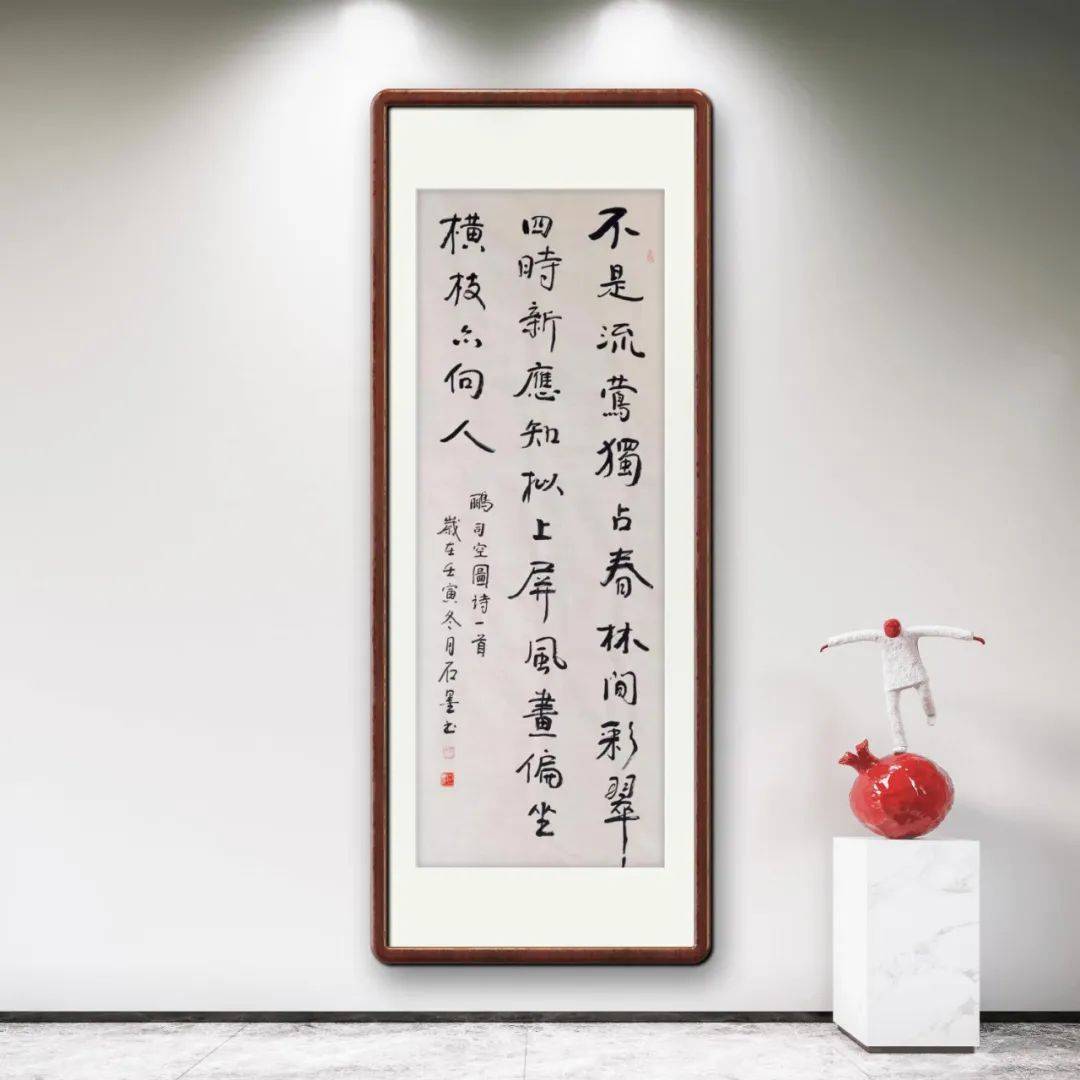 不是流莺獨占春林间彩翠
四時新應知拟上屏風畫偏坐
横枝亦向人
司空圖诗一首
歲在壬寅冬月石墨书